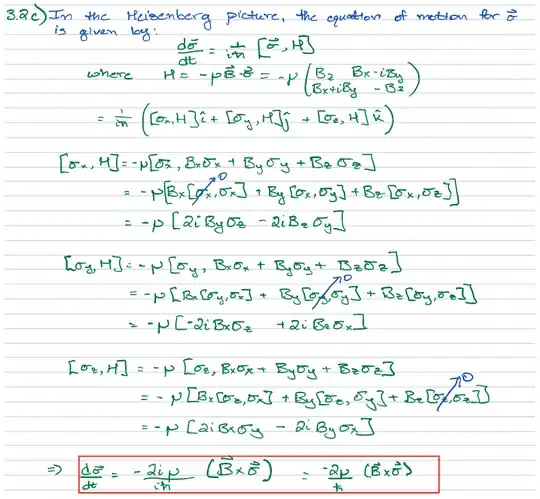 3.2c) In the Heisenberg picture, the equation of motion for σ⃗
is given by:
dσ⃗/dt = 1/iħ [σ⃗, H]
where H = -μB⃗·σ⃗ = -μ (Bz Bx-iBy
Bx+iBy -Bz)
= 1/iħ ([σx,H]î + [σy,H]ĵ + [σz,H]k̂)
[σx,H] = -μ[σx, Bxσx + Byσy + Bzσz]
= -μ[Bx[σx,σx] + By[σx,σy] + Bz[σx,σz]]
0
= -μ[2iByσz - 2iBzσy]
[σy,H] = -μ[σy, Bxσx + Byσy + Bzσz]
= -μ[Bx[σy,σx] + By[σy,σy] + Bz[σy,σz]]
0
= -μ[-2iBxσz + 2iBzσx]
[σz,H] = -μ[σz, Bxσx + Byσy + Bzσz]
= -μ[Bx[σz,σx] + By[σz,σy] + Bz[σz,σz]]
0
= -μ[2iBxσy - 2iByσx]
⇒ dσ⃗/dt = -2iμ/iħ (B⃗×σ⃗) = -2μ/ħ (B⃗×σ⃗)